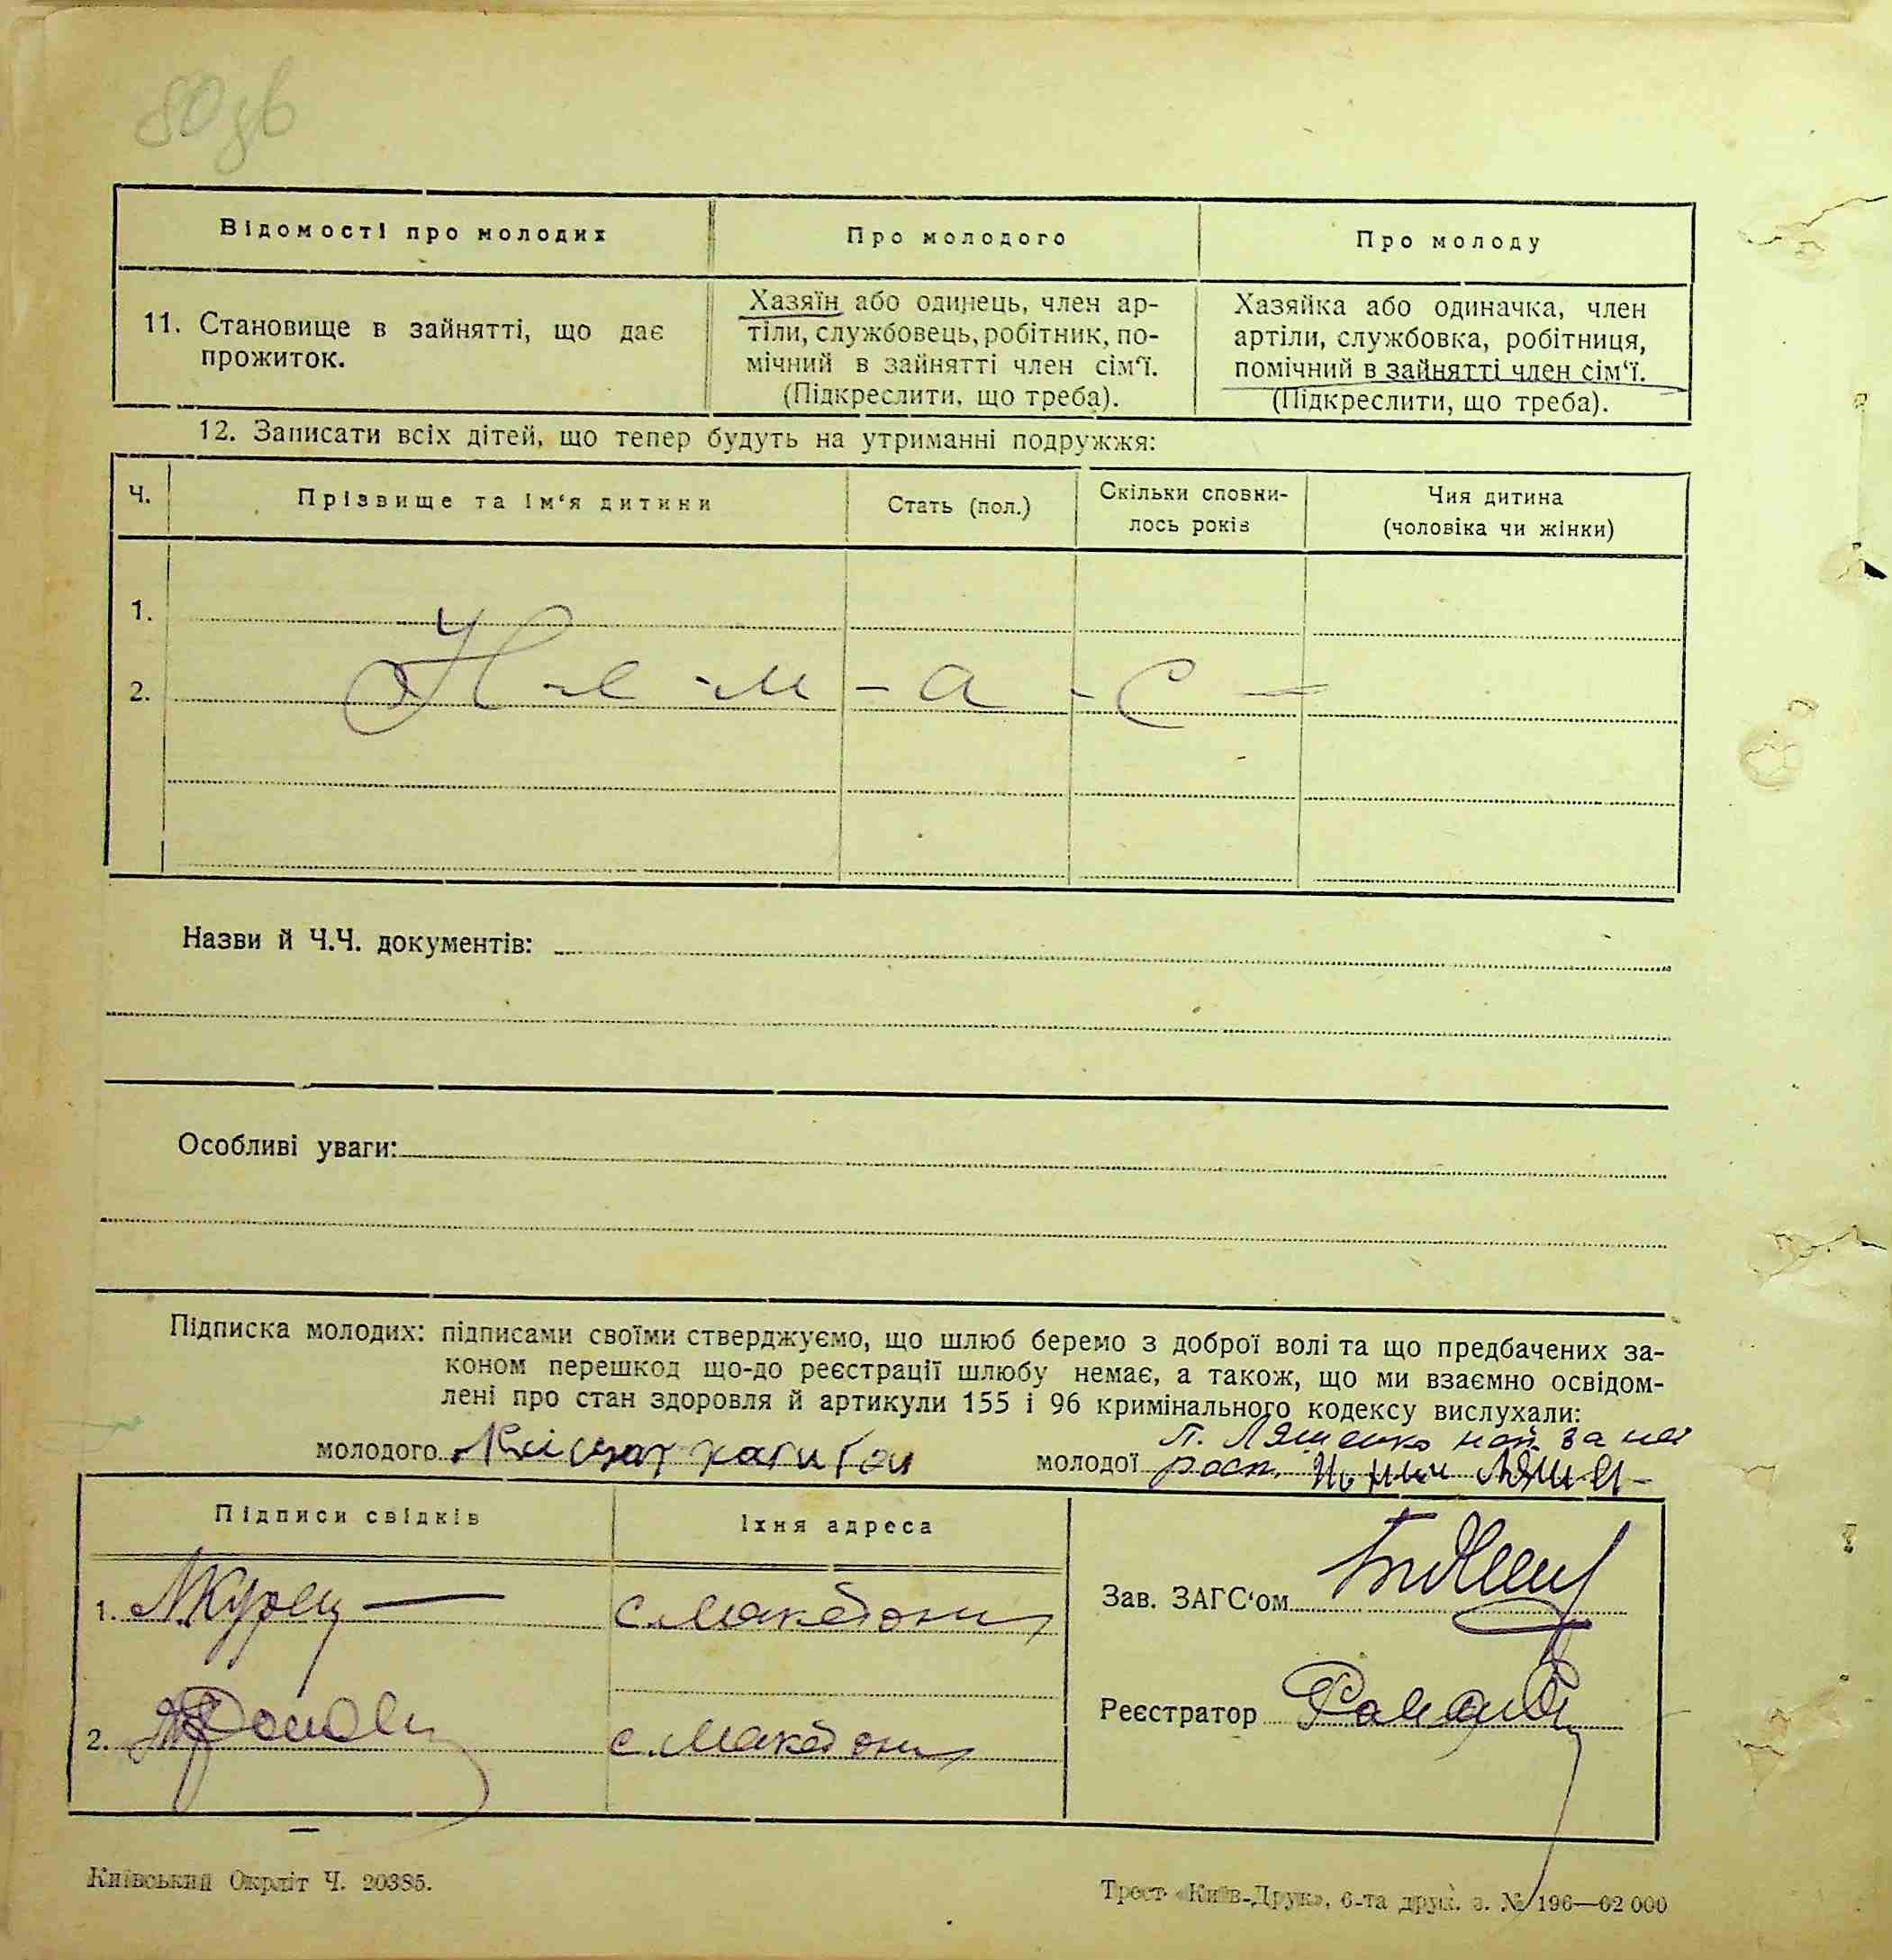 80зв
Відомості про молодих
Про молодого
Про молоду
11. Становище в зайнятті, що дає
прожиток.
Хазяїн або одинець, член ар-
тіли, службовець, робітник, по-
мічний в зайнятті член сім‘ї.
(Підкреслити, що треба).
Хазяйка або одиначка, член
артіли, службовка, робітниця,
помічний в зайнятті член сім‘ї.
(Підкреслити, що треба).
12. Записати всіх дітей, що тепер будуть на утриманні подружжя:
Ч.
Прізвище та ім‘я дитини
Стать (пол.)
Скільки сповни-
лось років
Чия дитина
(чоловіка чи жінки)
1.
2.
Н - е - м - а - є -
Назви й Ч.Ч. документів:
Особливі уваги:
Підписка молодих: підписами своїми стверджуємо, що шлюб беремо з доброї волі та що предбачених за-
коном перешкод що-до реєстрації шлюбу немає, а також, що ми взаємно освідом-
лені про стан здоровля й артикули 155 і 96 кримінального кодексу вислухали:
молодого
молодої
Л. Ляшенко за неї
росп.
Підписи свідків
Їхня адреса
1.
с. Македони
2.
с. Македони
Зав. ЗАГС‘ом
Реєстратор
Київський Окрліт Ч. 20385.
Трест «Київ-Друк», 6-та друк. з. № 196—62 000